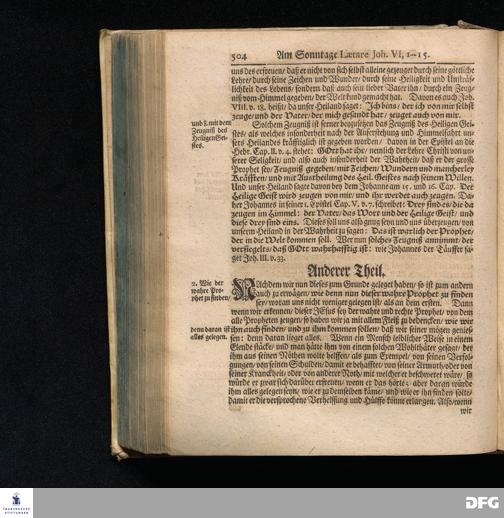 504 Am Sonntage Lætare Joh. VI, 1-15.
uns des erfreuen/ daß er nicht von sich selbst alleine gezeuget durch seine göttliche
Lehre/ durch seine Zeichen und Wunder/ durch seine Heiligkeit und Unsträf-
lichkeit des Lebens/ sondern daß auch sein lieber Vater ihn/ durch ein Zeug-
niß vom Himmel gegeben/ der Welt kund gemacht hat. Davon es auch Joh.
VIII. v. 18. heist/ da unser Heiland saget: Ich bins/ der ich von mir selbst
zeuge/ und der Vater/ der mich gesandt hat/ zeuget auch von mir.
und 8. mit dem
Zeugniß des
Heiligen Gei-
stes.
Solchem Zeugniß ist ferner beyzusetzen das Zeugniß des Heiligen Gei-
stes/ als welches insonderheit nach der Auferstehung und Himmelfahrt un-
sers Heilandes kräfftiglich ist gegeben worden/ davon in der Epistel an die
Hebr. Cap. II. v. 4. stehet: GOtt hat ihr/ nemlich der Lehre Christi von un-
serer Seligkeit/ und also auch insonderheit der Wahrheit/ daß er der grosse
Prophet sey/ Zeugniß gegeben/ mit Zeichen/ Wundern und mancherley
Kräfften/ und mit Austheilung des Heil. Geistes nach seinem Willen.
Und unser Heiland sagte davon bey dem Johanne am 15. und 16. Cap. Der
Heilige Geist wird zeugen von mir/ und ihr werdet auch zeugen. Da-
her Johannes in seiner 1. Epistel Cap. V. v. 7. schreibet: Drey sind es/ die da
zeugen im Himmel: der Vater/ das Wort und der Heilige Geist/ und
diese drey sind eins. Dieses soll uns also gnug seyn und uns überzeugen/ von
unserm Heiland in der Wahrheit zu sagen: Das ist warlich der Prophet/
der in die Welt kommen soll. Wer nun solches Zeugniß annimmt/ der
versiegelts/ daß GOtt wahrhafftig ist: wie Johannes der Täuffer sa-
get Joh. III. v. 33.
Anderer Theil.
2. Wie der
wahre Pro-
phet zu finden/
Nachdem wir nun dieses zum Grunde geleget haben/ so ist zum andern
auch zu erwägen/ wie denn nun dieser wahre Prophet zu finden
sey/ woran uns nicht weniger gelegen ist/ als an dem ersten. Dann
wenn wir erkennen/ dieser JEsus sey der wahre und rechte Prophet/ von dem
alle Propheten zeugen/ so haben wir ja mit allem Fleiß zu bedencken/ wie wir
denn daran ist
alles gelegen.
ihn auch finden/ und zu ihm kommen sollen/ daß wir seiner mögen genies-
sen: denn daran lieget alles. Wenn ein Mensch leiblicher Weise in einem
Elende stäcke/ und man hätte ihm von einem solchen Wohlthäter gesagt/ der
ihm aus seinen Nöthen wolte helffen/ als zum Exempel/ von seinen Verfol-
gungen/ von seinen Schulden/ damit er behafftet/ von seiner Armuth/ oder von
seiner Kranckheit/ oder von anderer Noth/ mit welcher er beschweret wäre/ so
würde er zwar sich darüber erfreuen/ wenn er das hörte; aber daran würde
ihm alles gelegen seyn/ wie er zu demselben käme/ und wie er ihn finden solte/
damit er die versprochene Verheissung und Hülffe könne erlangen. Also/ wenn
wir
FRANCKESCHE
STIFTUNGEN
DFG